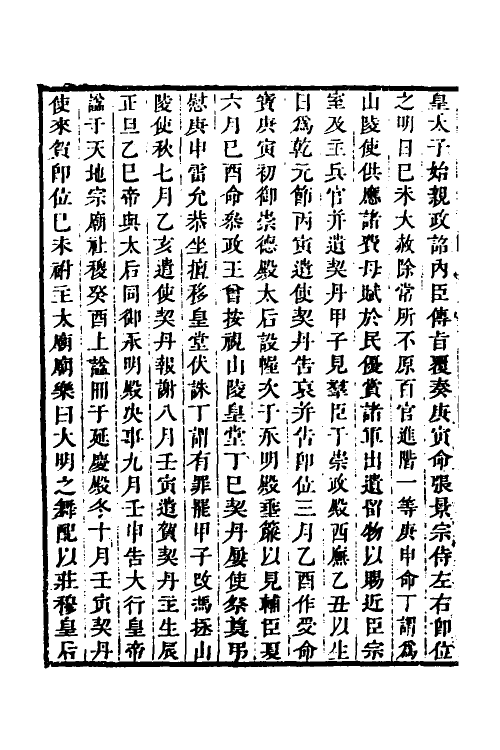 皇太子始親政詔內臣傳旨覆奏庚寅命張景宗侍左右卽位
之明日己未大赦除常所不原百官進階一等庚申命丁謂爲
山陵使供應諸費毋賦於民優賞諸軍出遺留物以賜近臣宗
室及主兵官并遺契丹甲子見羣臣于崇政殿西廡乙丑以生
日爲乾元節丙寅遣使契丹告哀并告卽位三月乙酉作受命
寶庚寅初御崇德殿太后設幄次于承明殿垂簾以見輔臣夏
六月己酉命參政王曾按視山陵皇堂丁巳契丹屢使祭奠弔
慰庚申雷允恭坐擅移皇堂伏誅丁謂有罪罷甲子改馮拯山
陵使秋七月乙亥遣使契丹報謝八月壬寅遣賀契丹主生辰
正旦乙巳帝與太后同御承明殿决事九月壬申告大行皇帝
謚于天地宗廟社稷癸酉上謚冊于延慶殿冬十月壬寅契丹
使來賀卽位己未祔主太廟廟樂曰大明之舞配以莊穆皇后